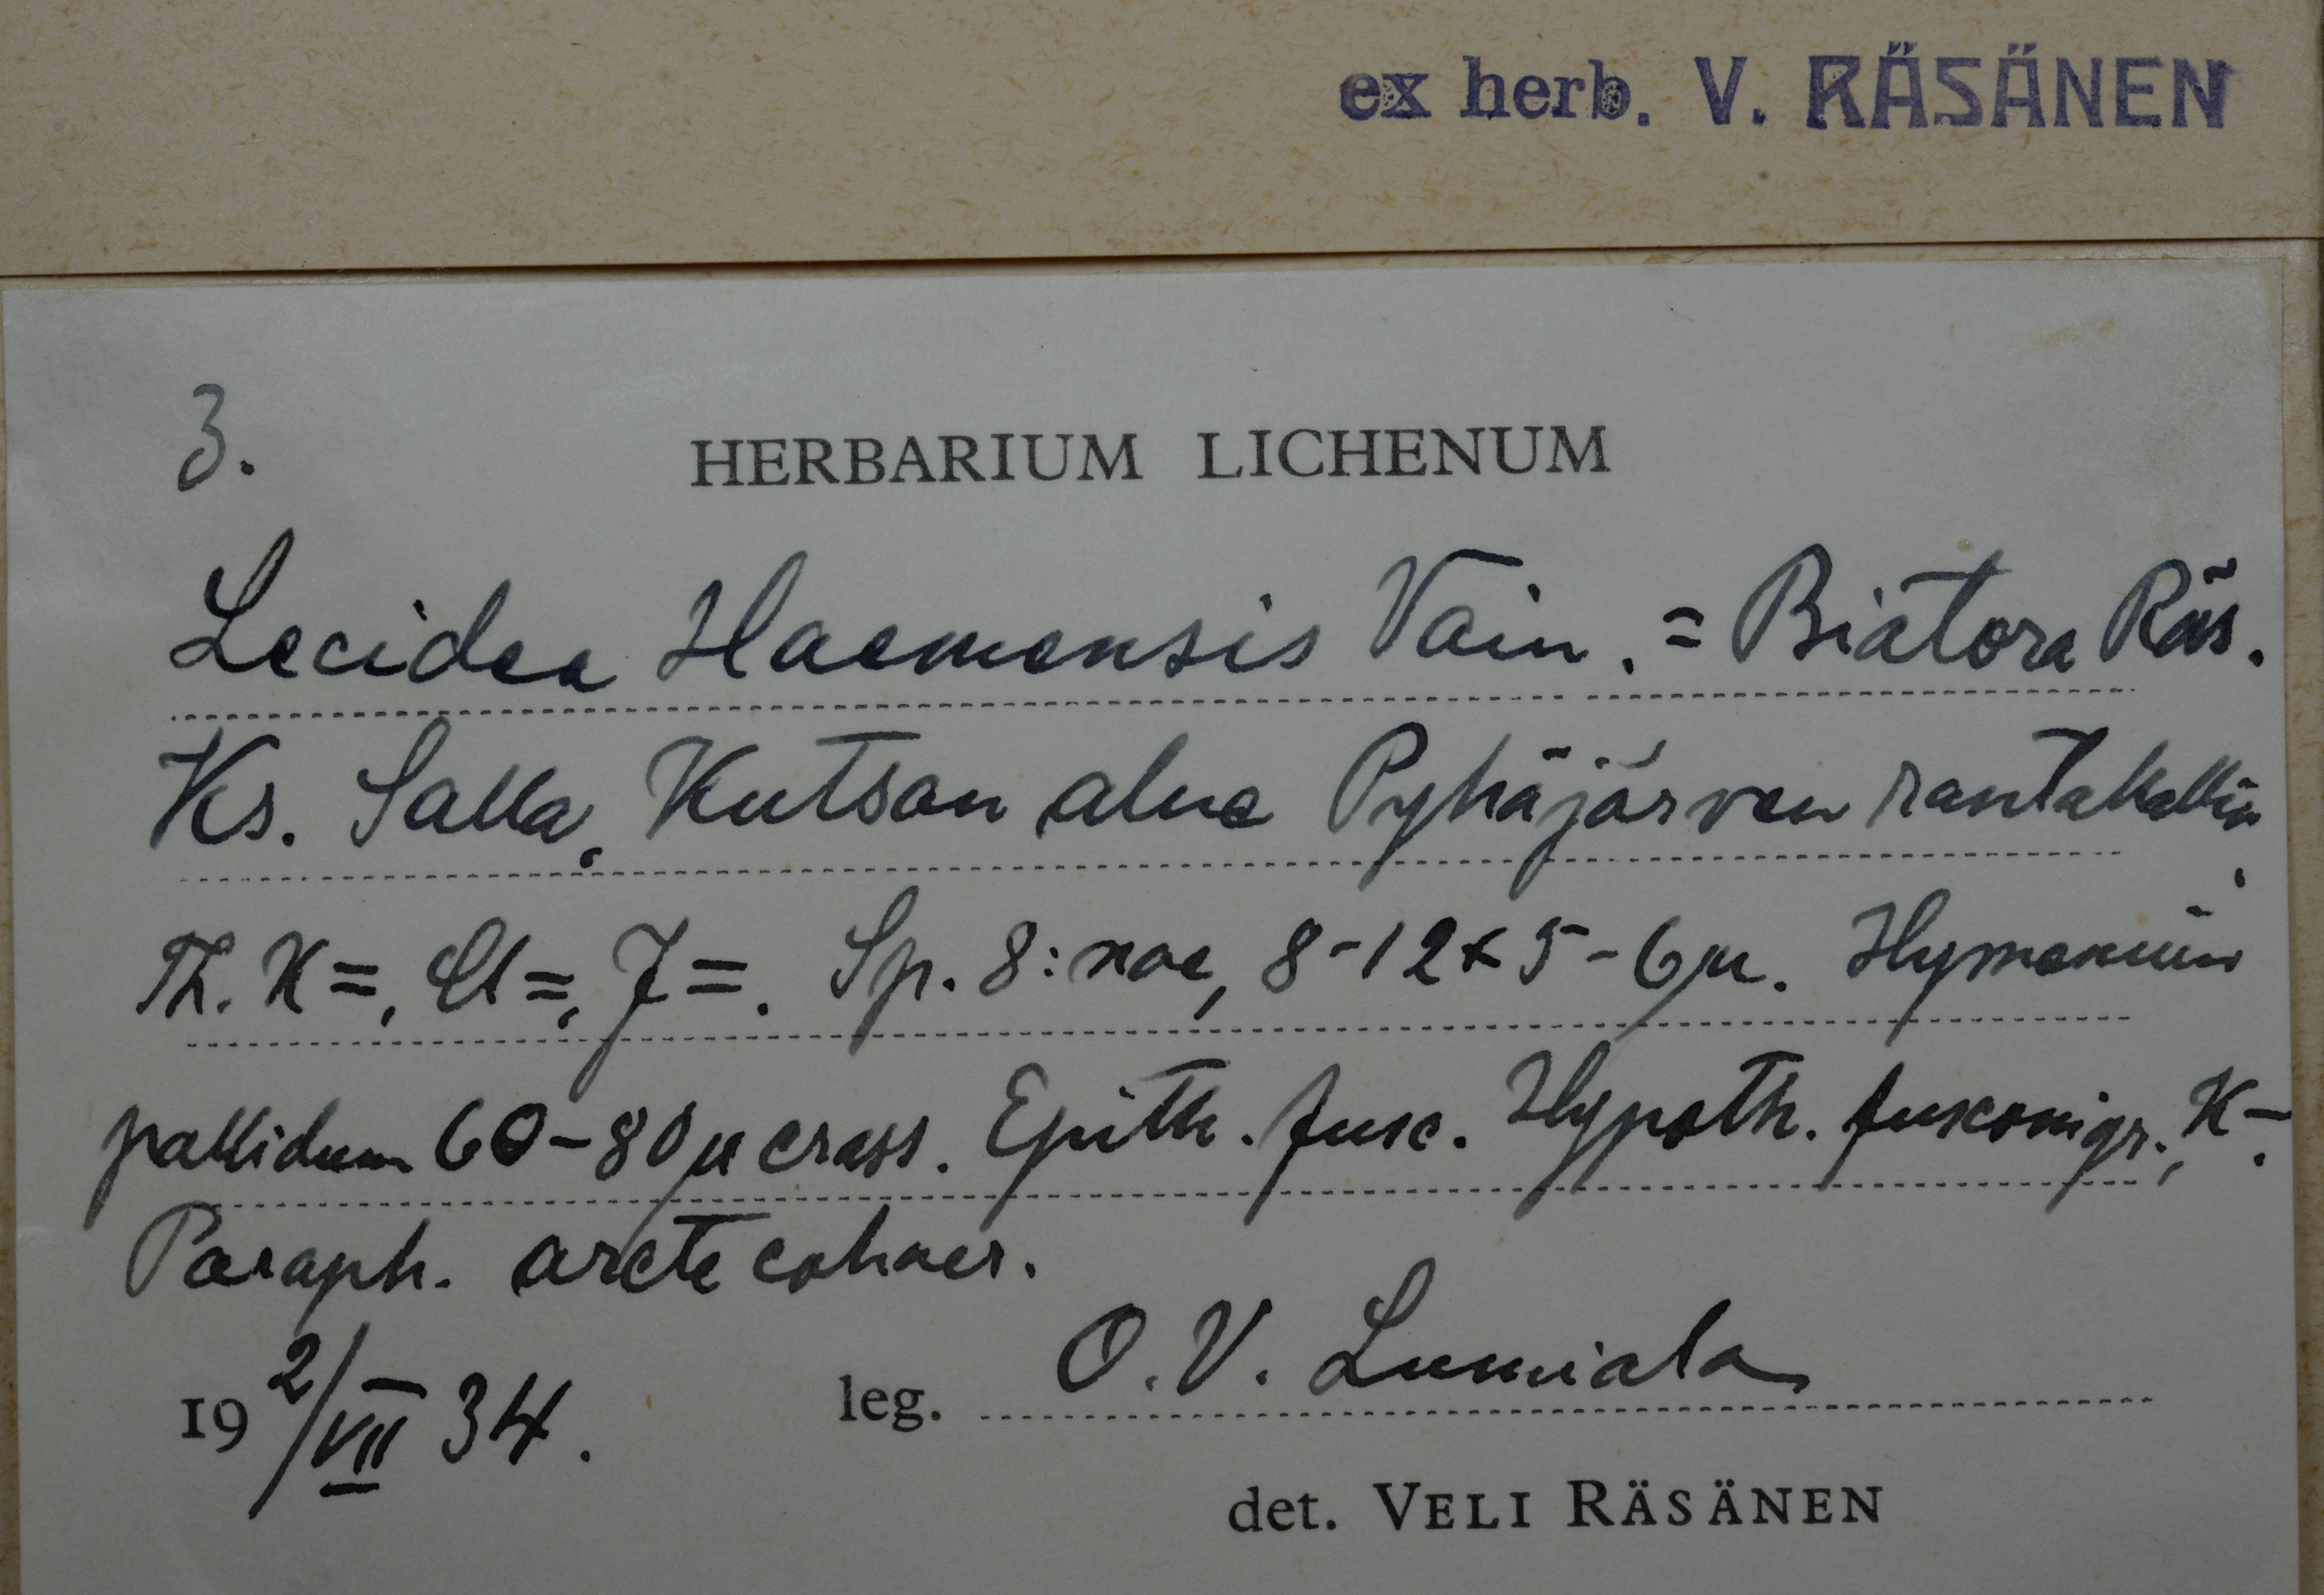 ex herb. V. RÄSÄNEN
3.
HERBARIUM LICHENUM
Lecidea Haemensis Vain. = Biatora Räs.
Ks. Salla, Kutsan alue Pyhäjärven rantakallio,
Th. K =, Cl =, J =. Sp. 8:nae, 8-12 x 5-6 µ. Hymenium
pallidum 60-80 µ crass. Epith. fusc. Hypoth. fusconigr., K-.
Paraph. arcte cohaer.
19 2/VII 34. leg. O. V. Lumiala
det. VELI RÄSÄNEN